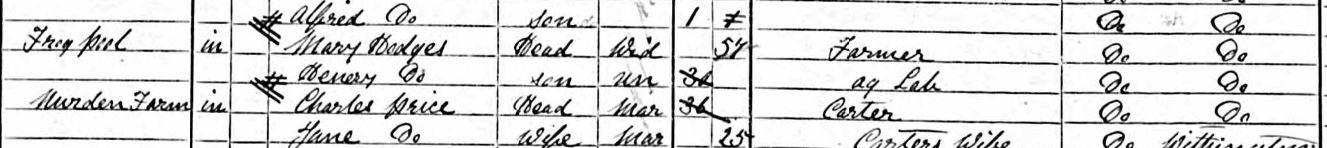 Alfred Do son 1 Do Do
Frog pool in Mary Hodges Head Wid 57 Farmer Do Do
Henery Do son un ag Lab Do Do
Nurden Farm in Charles Price Head Mar 36 Carter Do Do
Jane Do Wife Mar 25 Carters Wife Do